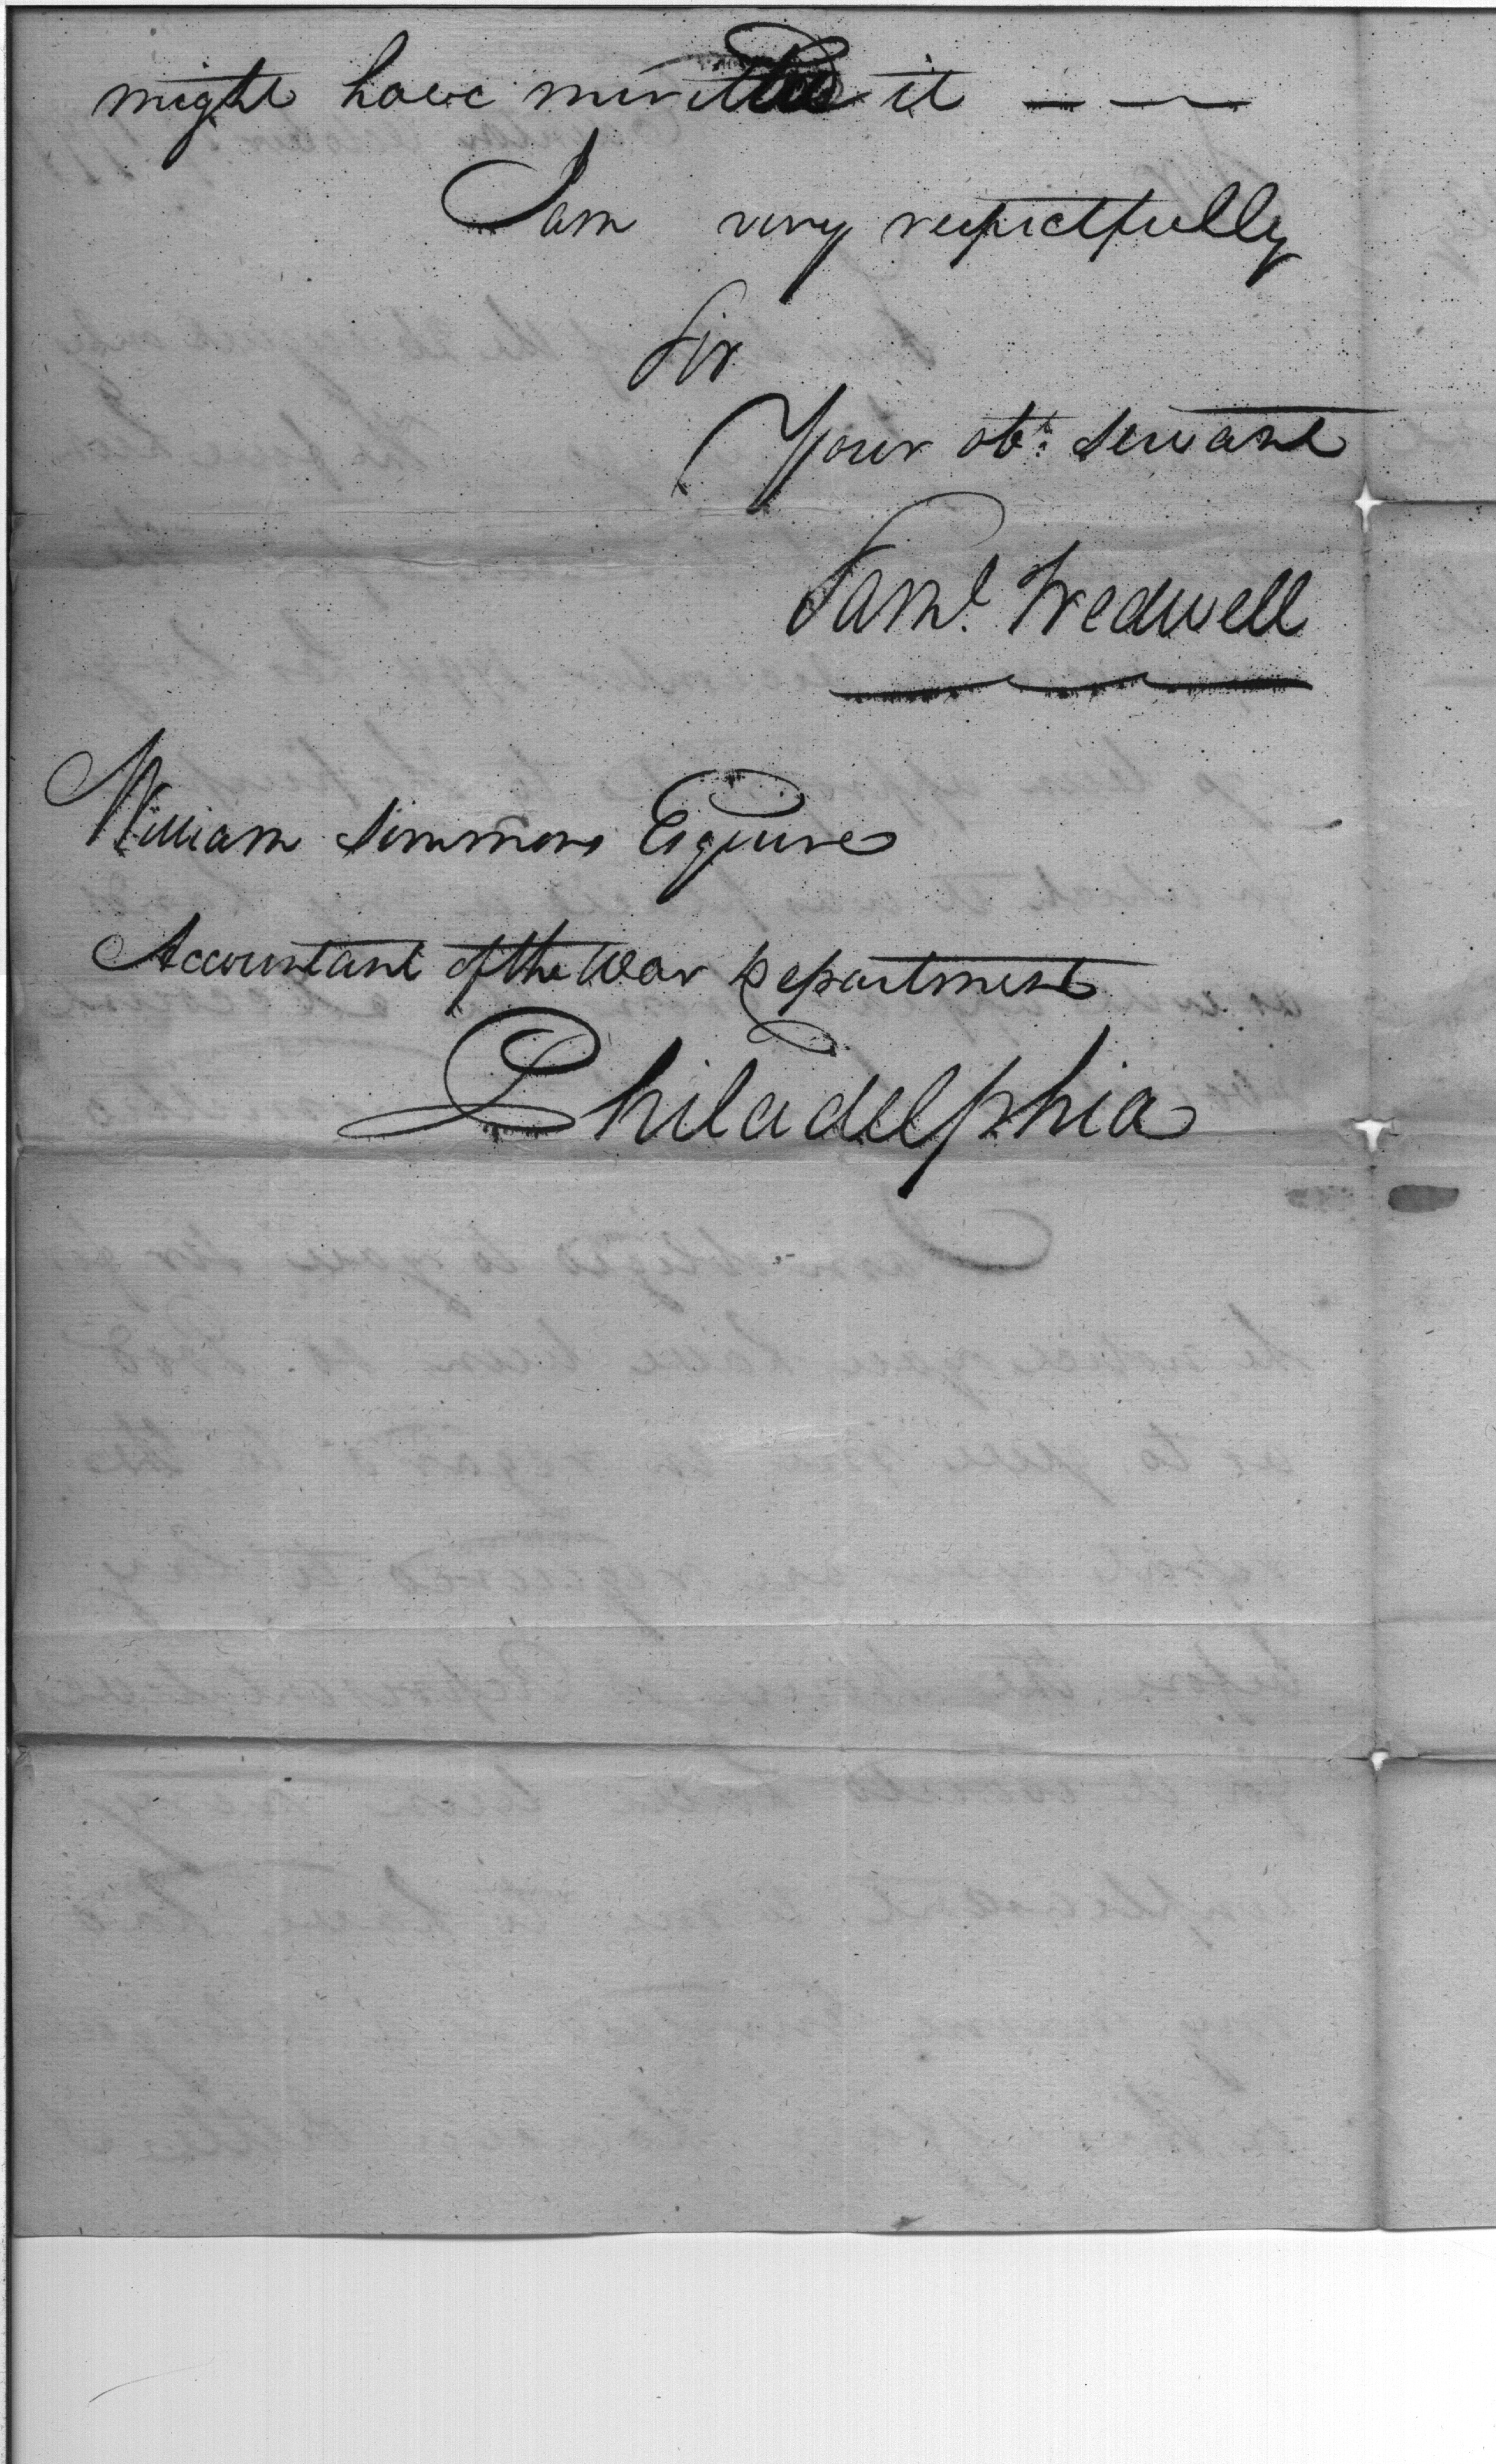 might have merited it — —
I am very respectfully
Sir
Your obt: Servant
Saml. Tredwell
William Simmons Esquire
Accountant of the War Department
Philadelphia